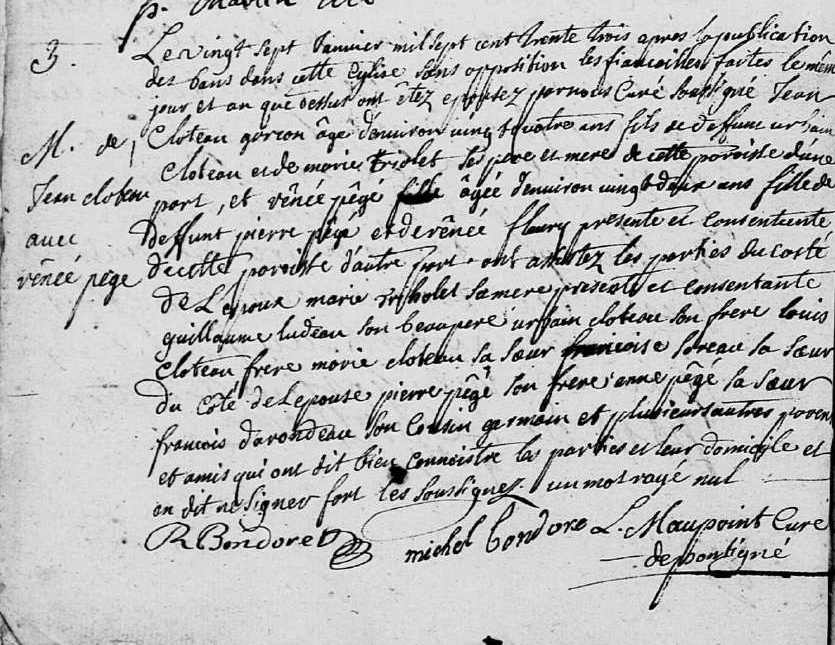 p.
3.
M. de
Jean cloteau
avec
rênéé pegé
Le vingt sept Janvier mil sept cent trente trois apres la publication
des bans dans cette Eglise sans opposition les fiancailles faites le mém
jour et an que dessus ont êtez epousez par nous Curé soussigné Jean
Cloteau garcon âgé d'environ vingt quatre ans fils de deffunt urbain
Cloteau et de marie triolet ses pere et mere de cette paroisse d'une
part, et rênéé pêgé fille âgée d'environ vingt deux ans fille de
deffunt pierre pêgé et de rênéé fleury presente et consentante
de cette paroisse d'autre part. ont assistez les parties du costé
de Lepoux marie triholet sa mere presente et consentante
guillaume ludeau son beaupere urbain cloteau son frere louis
Cloteau frere marie cloteau sa sœur francoise soreau sa sœur
du côté de Lepouse pierre pêgé son frere anne pêgé sa sœur
francois darondeau son Cousin germain et plusieurs autres parens
et amis qui ont dit bien connoistre les parties et leur domicile et
on dit ne signer fort les soussignez. un mot rayé nul
R Bondoret michel bondore L. Maupoint Cure
de pontigné